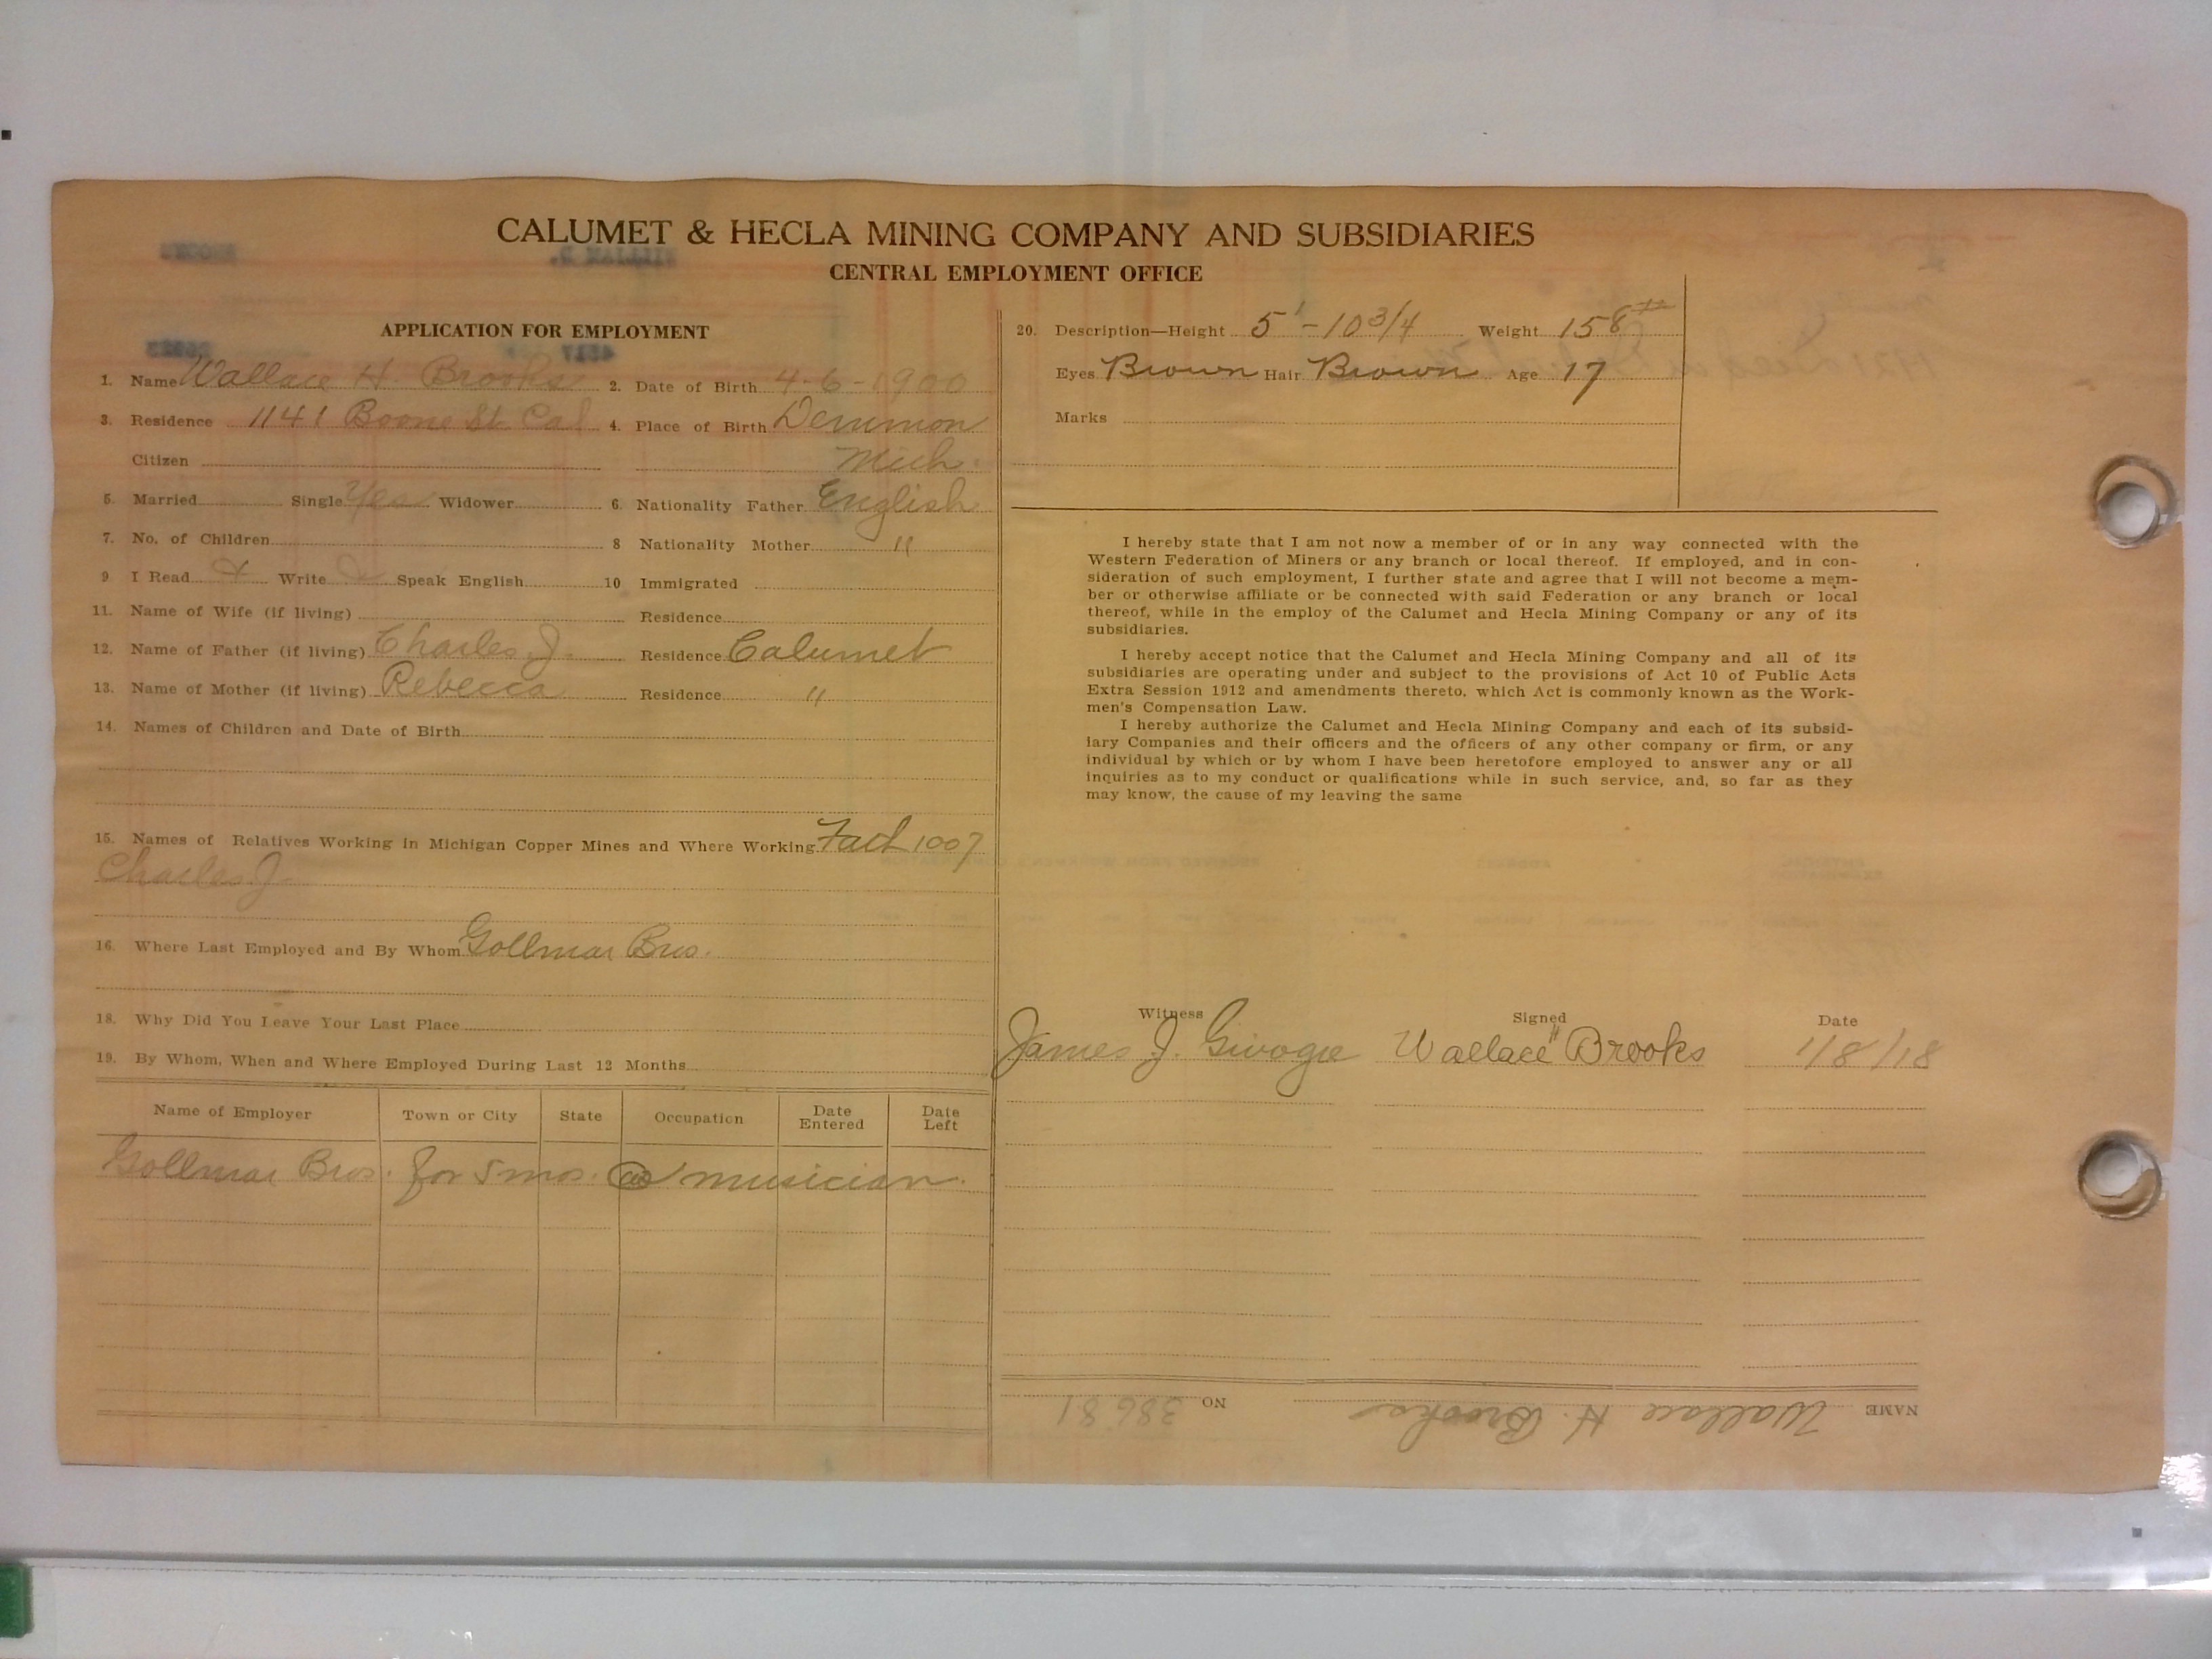 CALUMET & HECLA MINING COMPANY AND SUBSIDIARIES
CENTRAL EMPLOYMENT OFFICE
APPLICATION FOR EMPLOYMENT
1. Name Wallace H. Brooks 2. Date of Birth 4-6-1900
3. Residence 1141 Boone St. Cal 4. Place of Birth Demmon
Citizen Mich.
5. Married Single Yes Widower 6. Nationality Father English
7. No. of Children 8 Nationality Mother "
9. I Read Write Speak English 10 Immigrated
11. Name of Wife (if living) Residence
12. Name of Father (if living) Charles J. Residence Calumet
13. Name of Mother (if living) Rebecca Residence "
14. Names of Children and Date of Birth
15. Names of Relatives Working in Michigan Copper Mines and Where Working 1007
Charles J.
16. Where Last Employed and By Whom Gollmar Bros.
18. Why Did You Leave Your Last Place
19. By Whom, When and Where Employed During Last 12 Months
Name of Employer Town or City State Occupation Date Entered Date Left
Gollmar Bros. for 5 mos. as musician.
20. Description—Height 5'-10 3/4 Weight 158#
Eyes Brown Hair Brown Age 17
Marks
I hereby state that I am not now a member of or in any way connected with the
Western Federation of Miners or any branch or local thereof. If employed, and in con-
sideration of such employment, I further state and agree that I will not become a mem-
ber or otherwise affiliate or be connected with said Federation or any branch or local
thereof, while in the employ of the Calumet and Hecla Mining Company or any of its
subsidiaries.
I hereby accept notice that the Calumet and Hecla Mining Company and all of its
subsidiaries are operating under and subject to the provisions of Act 10 of Public Acts
Extra Session 1912 and amendments thereto, which Act is commonly known as the Work-
men's Compensation Law.
I hereby authorize the Calumet and Hecla Mining Company and each of its subsid-
iary Companies and their officers and the officers of any other company or firm, or any
individual by which or by whom I have been heretofore employed to answer any or all
inquiries as to my conduct or qualifications while in such service, and, so far as they
may know, the cause of my leaving the same
Witness Signed Date
James J. Wallace H Brooks 1/8/18
NAME Wallace H. Brooks NO 38681